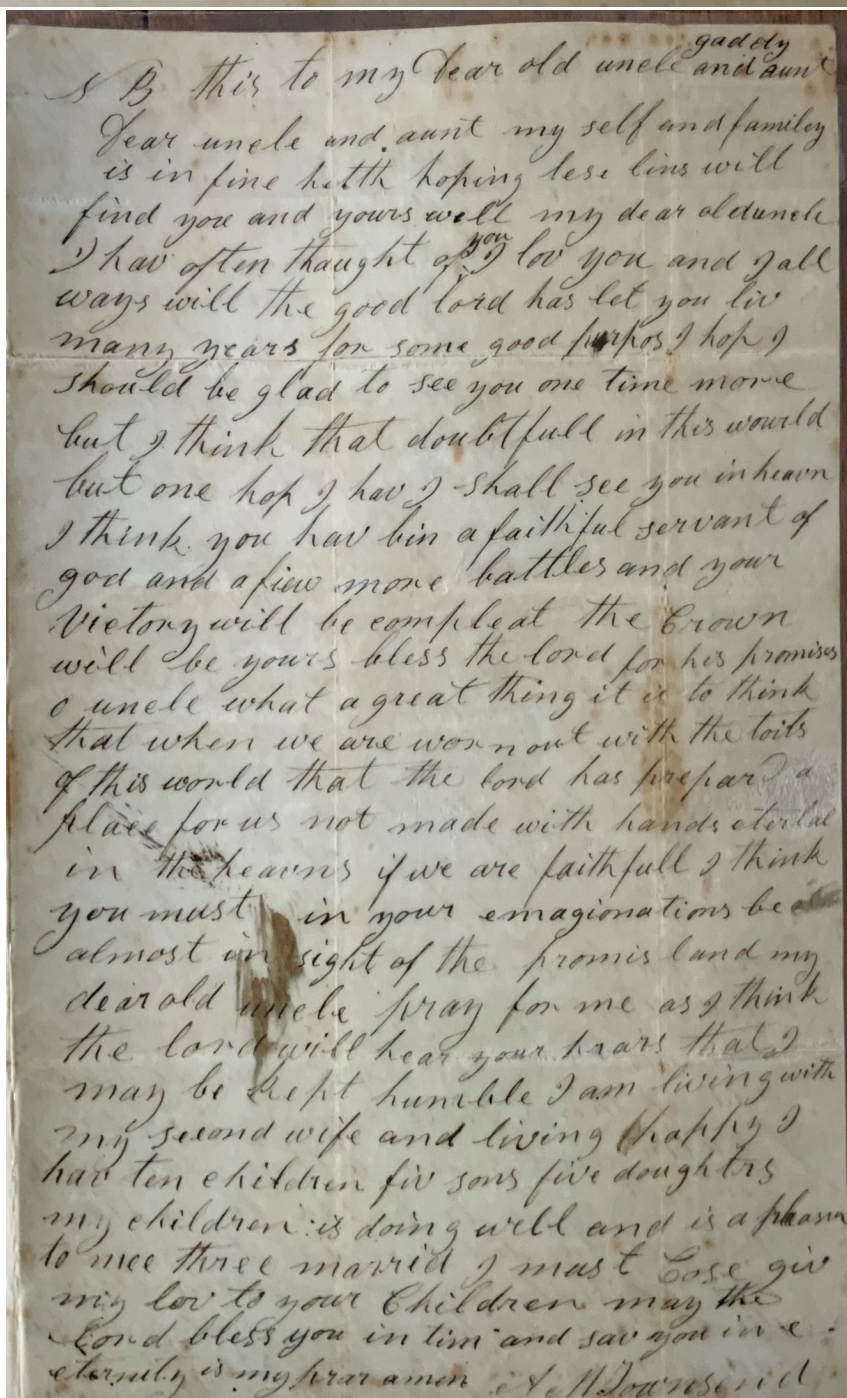 N B this to my Dear old uncle gaddy and aunt
Dear uncle and aunt my self and familey
is in fine helth hoping lese lins will
find you and yours well my dear old uncle
I hav often thaught of you I lov you and I all
ways will the good lord has let you liv
many years for some good purpos I hop I
should be glad to see you one time more
but I think that doubtfull in this wourld
but one hop I hav I shall see you in heavn
I think you hav bin a faithful servant of
god and a fiew more battles and your
Victory will be compleat the Crown
will be yours bless the lord for his promises
o uncle what a great thing it is to think
that when we are worn out with the toils
of this world that the lord has prepard a
place for us not made with hands
in the heavns if we are faithfull I think
you must in your emagionations be
almost in sight of the promis land my
dear old uncle pray for me as I think
the lord will hear your prars that I
may be kept humble I am living with
my second wife and living happy I
hav ten children fiv sons five doughtrs
my children is doing well and is a pleasur
to mee three marrid I must Cose giv
my lov to your Children may the
Lord bless you in tim and sav you in e
eternity is my prar amen A M Townsend